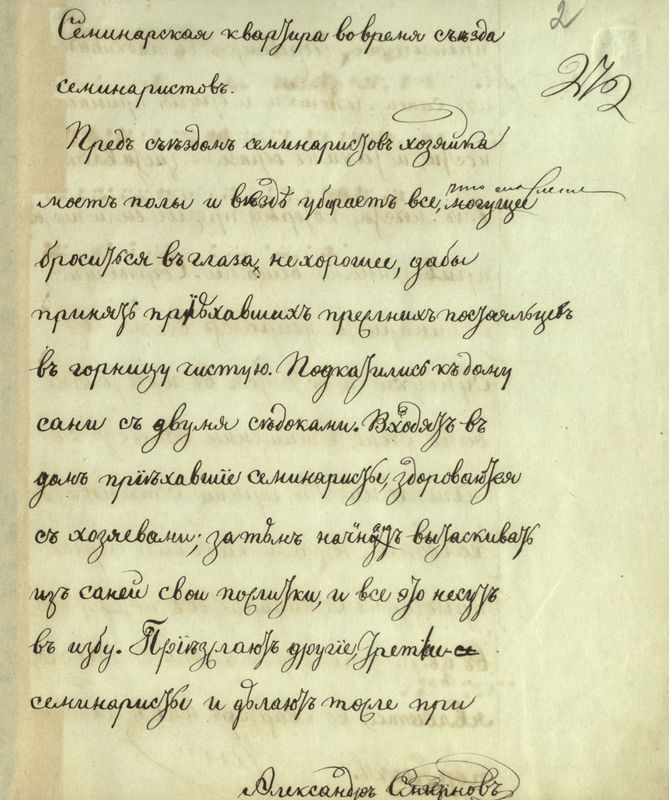 2
272
Семинарская квартира во время съѣзда
семинаристовъ.
Предъ съѣздомъ семинаристовъ хозяйка
моетъ полы и вездѣ убираетъ все, могущее
броситься въ глаза, нехорошее, дабы
принять пріѣхавшихъ прежнихъ постояльцевъ
въ горницу чистую. Подкатились къ дому
сани съ двумя сѣдоками. Входятъ въ
домъ пріѣхавшіе семинаристы, здороваются
съ хозяевами; затѣмъ начнутъ вытаскивать
изъ саней свои пожитки, и все это несутъ
въ избу. Пріѣзжаютъ другіе, третьи
семинаристы и дѣлаютъ тоже при
Александръ Смирновъ